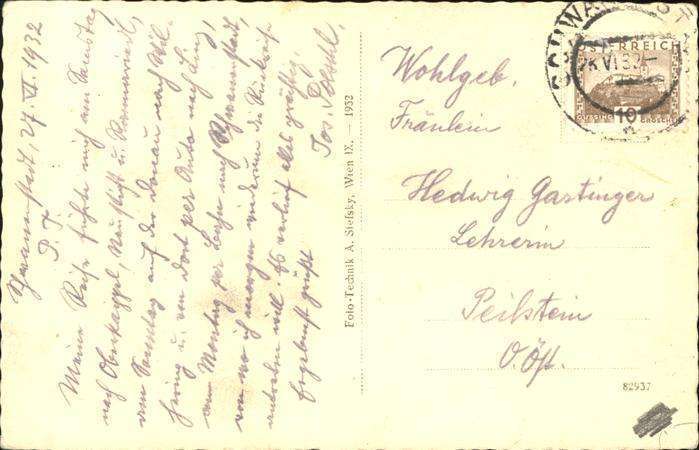 Schwanenstadt, 27. VI. 1932
P. T.
Meine Reise führte mich am Samstag
nach Oberkappel, Neustift u.
am Sonntag auf der Donau nach Wil-
hering u. von dort per Auto nach Linz,
am Montag per Bahn nach Schwanenstadt,
von wo ich morgen wiederum die Rückreise
antreten will. Es verlief alles
Ergebenst grüßt
Jos.
Foto-Technik A. Stefsky, Wien IX. — 1932
ÖSTERREICH
GROSCHEN
VI.32
10
Wohlgeb.
Fräulein
Hedwig Gastinger
Lehrerin
Peilstein
O.Öst.
82937